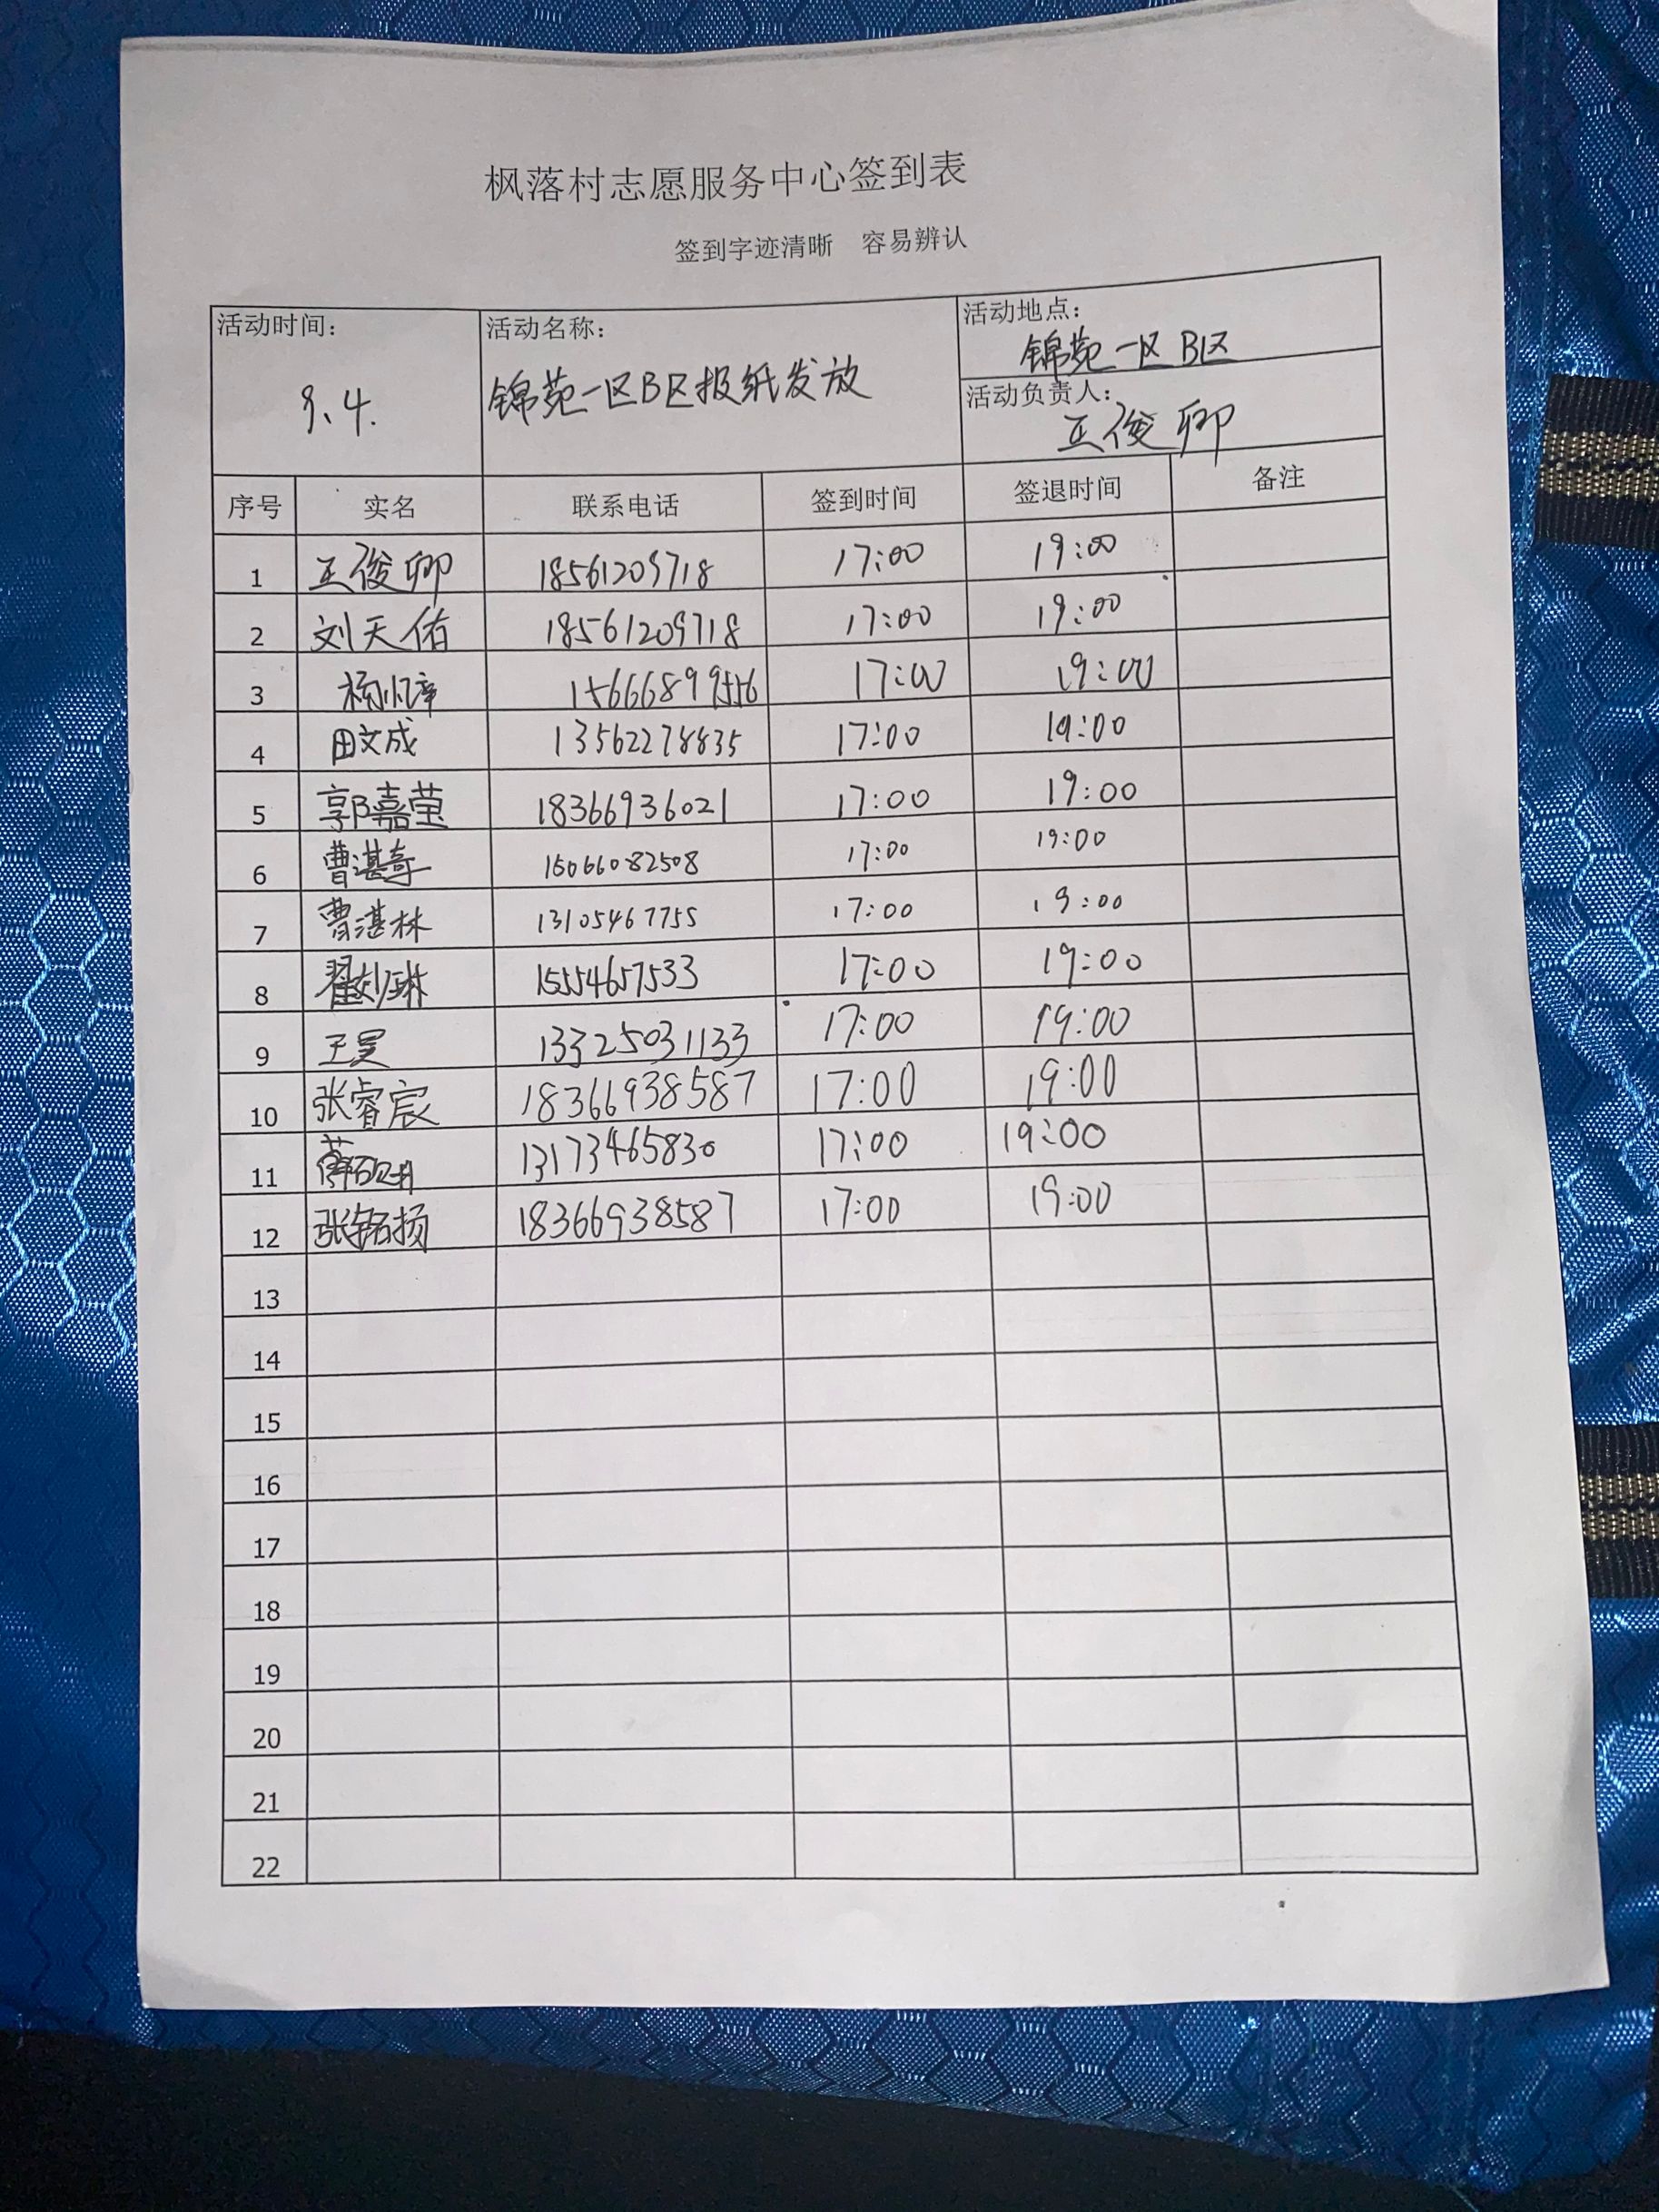 枫落村志愿服务中心签到表
签到字迹清晰 容易辨认
活动时间: 9.4.
活动名称: 锦苑一区B区报纸发放
活动地点: 锦苑一区B区
活动负责人: 王俊卿
序号 实名 联系电话 签到时间 签退时间 备注
1 王俊卿 18561209718 17:00 19:00
2 刘天佑 18561209718 17:00 19:00
3 17:00 19:00
4 田文成 13562278835 17:00 19:00
5 郭嘉莹 18366936021 17:00 19:00
6 曹湛奇 15066082508 17:00 19:00
7 曹湛林 13105467755 17:00 19:00
8 15554657533 17:00 19:00
9 王昊 13325031133 17:00 19:00
10 张睿宸 18366938587 17:00 19:00
11 13173465830 17:00 19:00
12 张铭扬 18366938587 17:00 19:00
13
14
15
16
17
18
19
20
21
22